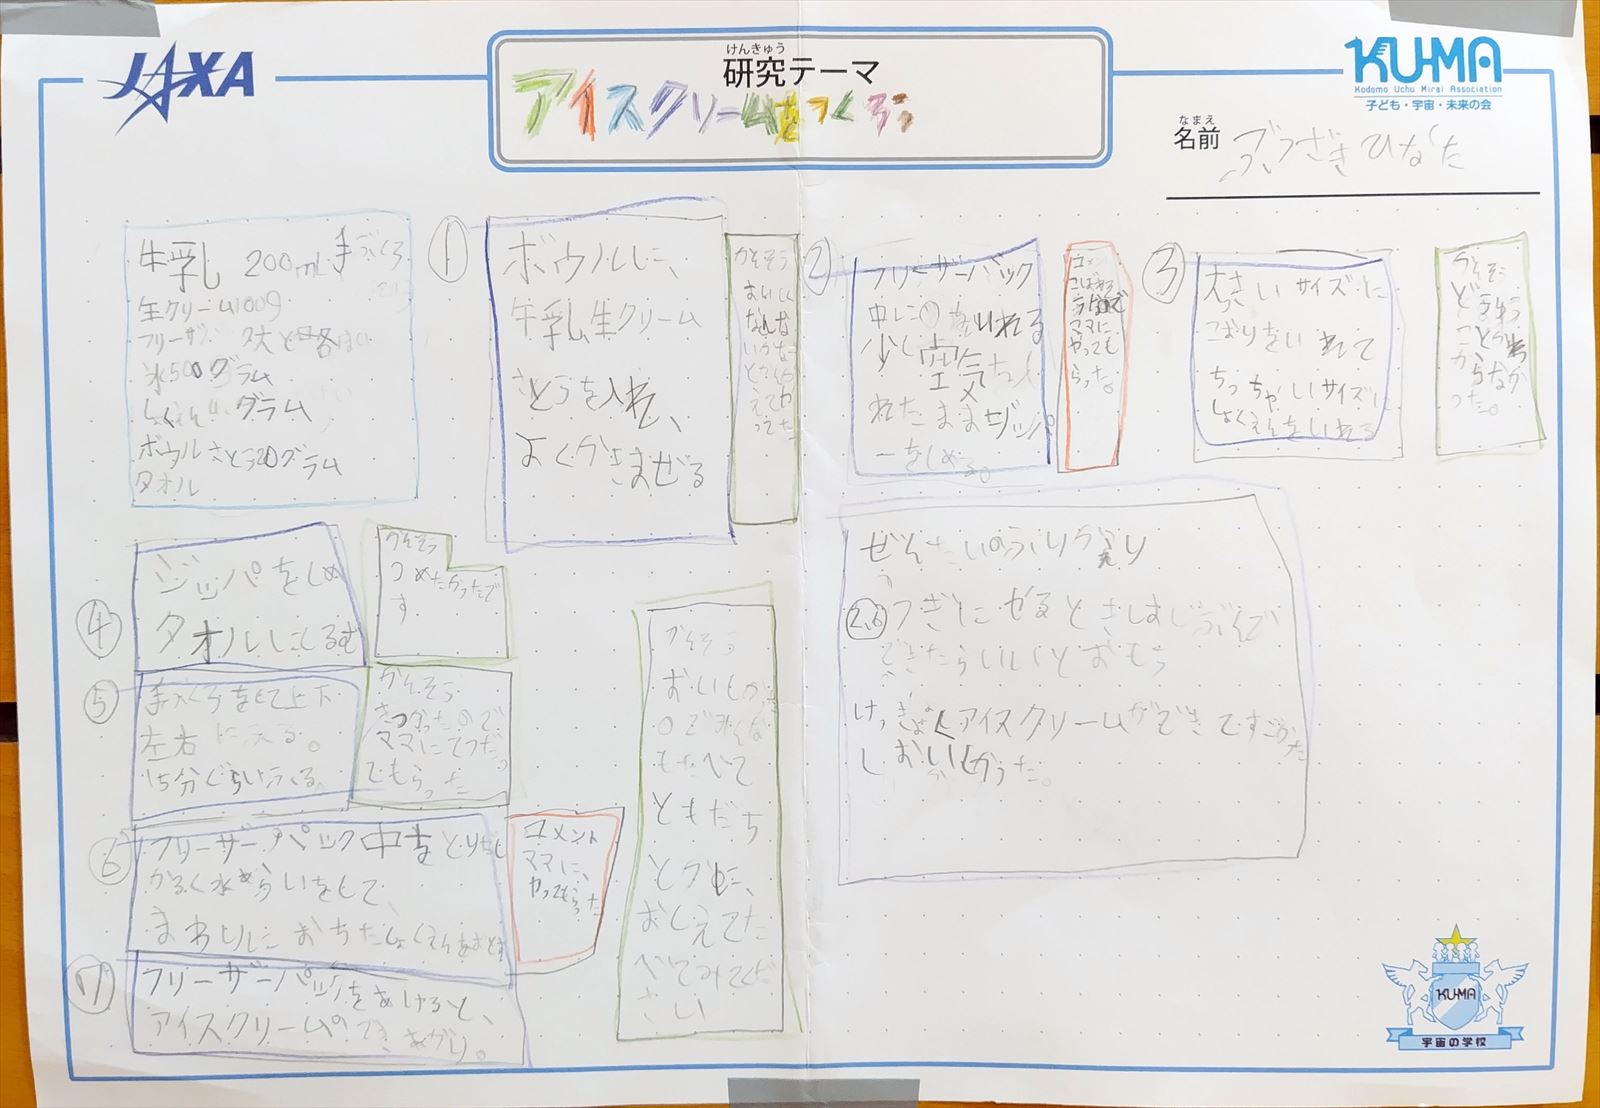 JAXA
けんきゅう
研究テーマ
アイスクリームをつくろう
KU-MA
Kodomo Uchu Mirai Association
子ども・宇宙・未来の会
なまえ
名前
ひなた
牛乳 200mL 手ぶくろ
生クリーム100g
フリーザー
氷500グラム
グラム
ボウル さとう20グラム
タオル
①
ボウルに、
牛乳生クリーム
さとうを入れて、
よくかきまぜる
かんそう
②
フリーザーパック
中に①をいれる
少し空気を入
れたままジッパ
ーをしめる。
コメント
こぼれる
ママに
やっても
らった。
③
大きいサイズに
こおりをいれて
ちっちゃいサイズに
しょくえんをいれる
かんそう
どうやう
ことかわ
からなか
った。
④
ジッパをしめ
タオルにくるむ
かんそう
つめたかったで
す
⑤
手ぶくろをして上下
左右にふる。
15分ぐらいふる。
かんそう
きつかったので
ママにてつだっ
てもらった
⑥
フリーザーパック中をとりだし
かるく水あらいをして、
まわりにおちたしょくえんをおとす
コメント
ママに、
やってもらった
⑦
フリーザーパックをあけると、
アイスクリームのできあがり。
かんそう
おいしいもの
のでみんな
もたべて
ともだち
とかに、
おしえてた
べてみてくだ
さい
ぜんたいのふりかえり
2、6 つぎにやるときはじぶんで
できたらいいとおもう
けっきょくアイスクリームができてすごかった
しおいしかった。
KU-MA
宇宙の学校